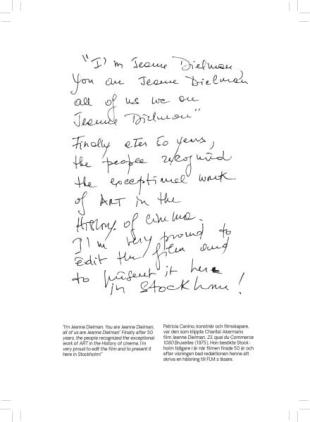 "I'm Jeanne Dielman
You are Jeanne Dielman
all of us we are
Jeanne Dielman"
Finally after 50 years,
the people recognized
the exceptional work
of ART in the
History of cinema.
I'm very proud to
edit the film and
to present it here
in Stockholm!
"I'm Jeanne Dielman. You are Jeanne Dielman,
all of us are Jeanne Dielman" Finally after 50
years, the people recognized the exceptional
work of ART in the History of cinema. I'm
very proud to edit the film and to present it
here in Stockholm"
Patricia Canino, konstnär och filmskapare,
var den som klippte Chantal Akermans
film Jeanne Dielman, 23, quai du Commerce
1080 Bruxelles (1975). Hon besökte Stock-
holm tidigare i år när filmen firade 50 år och
efter visningen bad redaktionen henne att
skriva en hälsning till FLM:s läsare.